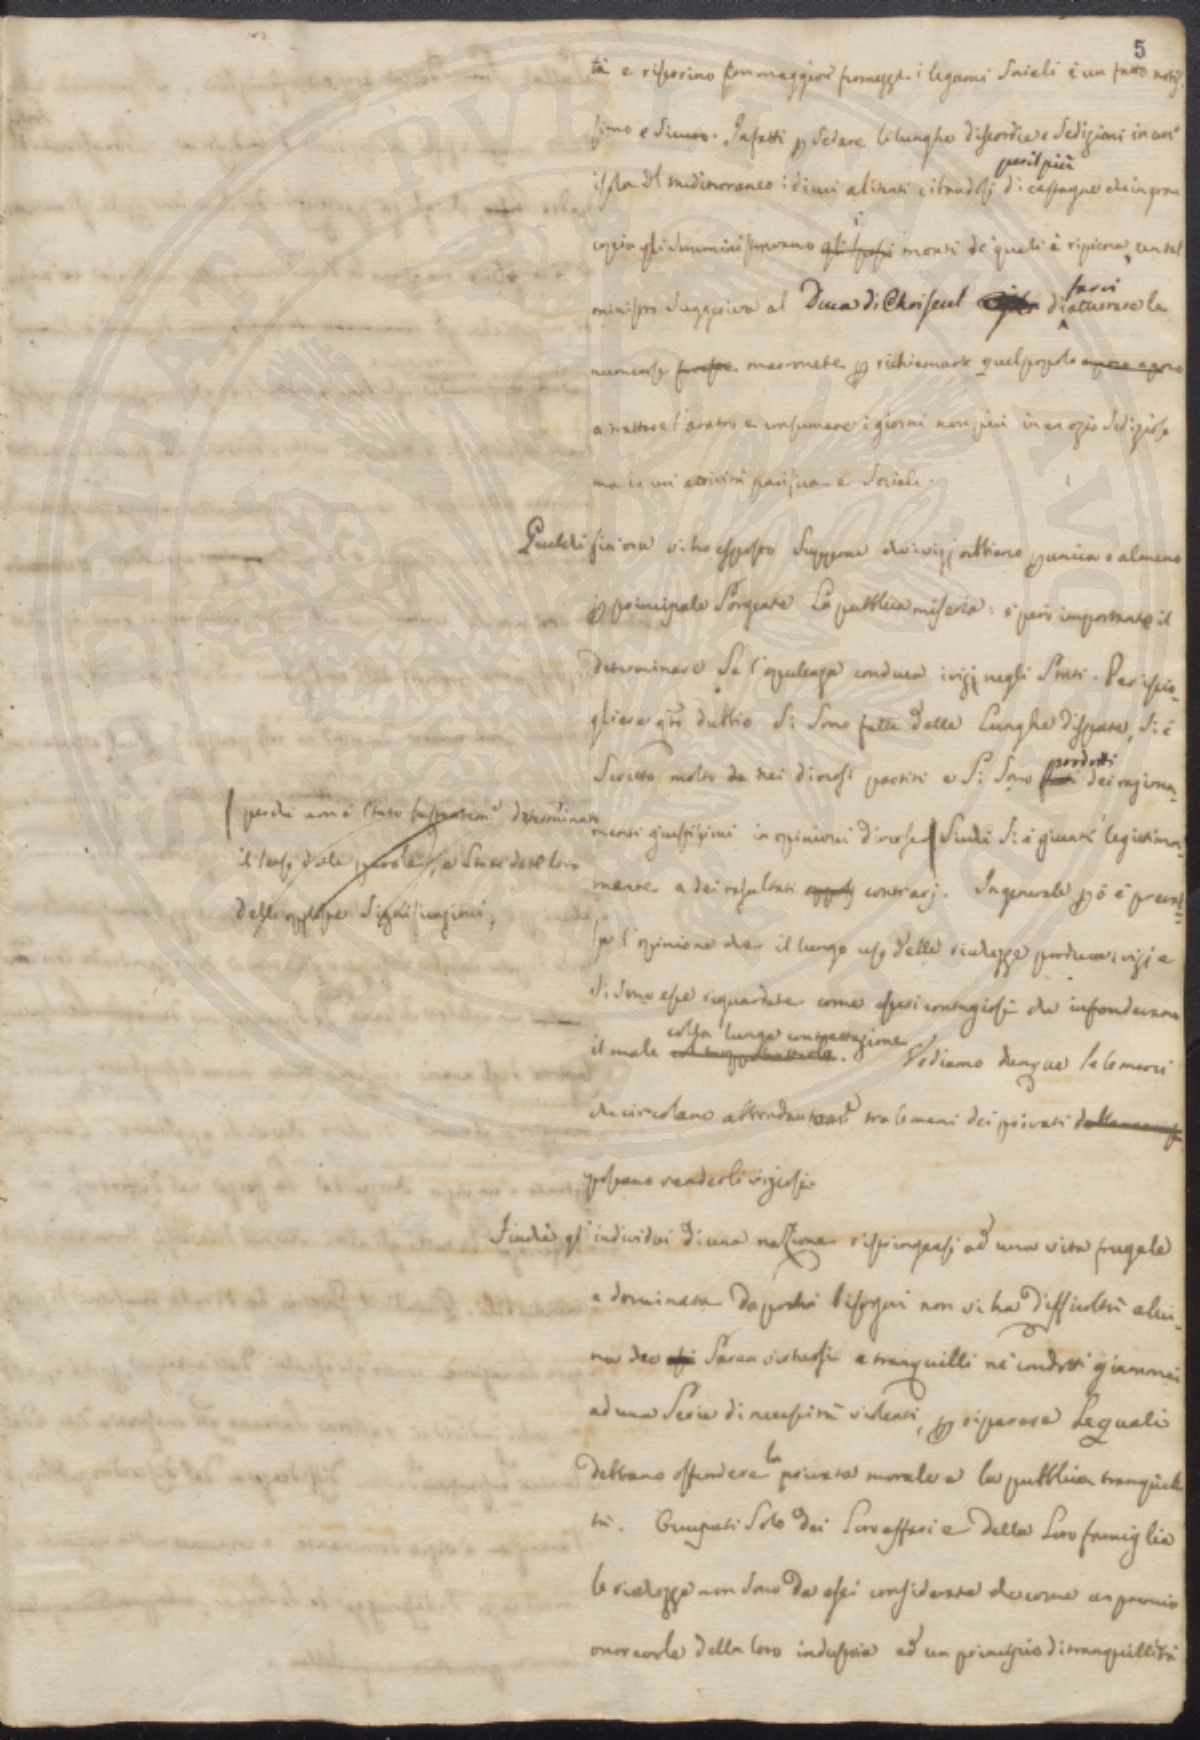 5
tà e risserino con maggior fermezza i legami sociali è un fatto notis-
simo e sicuro. Infatti p sedare le lunghe discordie e sedizioni in un'
isola del mediterraneo i di cui abitanti cibandosi per il più di castagne che in gran
copia gli somministravano gli i monti de' quali è ripiena, un tal
ministro suggeriva al Duca di Choiseul di farvi atterrare le
numerose foreste p richiamare quel popolo
a trattare l'aratro e consumare i giorni non più in un ozio sedizioso
ma in un' attività pacifica e sociale.
Quel di fin ora vi ho esposto suppone che i vizj abbiano p unica o almeno
p principale sorgente la pubblica miseria: è però importante il
determinare se l'opulenza conduca i vizj negli stati. Per iscio-
gliere qto dubbio si sono fatte delle lunghe dispute, si è
scritto molto da nei diversi partiti e si sono prodotti dei ragiona-
menti giustissimi in opinioni diverse sicché si è giunti legittima-
perché non è stato determinato
il senso delle parole, e state date loro
delle opposte significazioni,
mente a dei resultati contrarj. In generale p ò è preval-
sa l'opinione che il lungo uso delle ricchezze produca i vizj e
si sono esse riguardate come che infondevano
il male colla lunga contrattazione. Vediamo dunque se le merci
che circolano abbondantemte tra le mani dei privati
possano renderli viziosi.
Finché gl' individui di una nazione ristringansi ad una vita frugale
e dominata da pochi bisogni non vi ha difficoltà alcu-
na che saran virtuosi e tranquilli né condotti giammai
ad una serie di necessità violenti, p riparare le quali
debbano offendere la privata morale e la pubblica tranquilli-
tà. Occupati solo dei loro affari e della loro famiglia
le ricchezze non sono da essi considerate che come un premio
onorevole della loro industria ed un principio di tranquillità